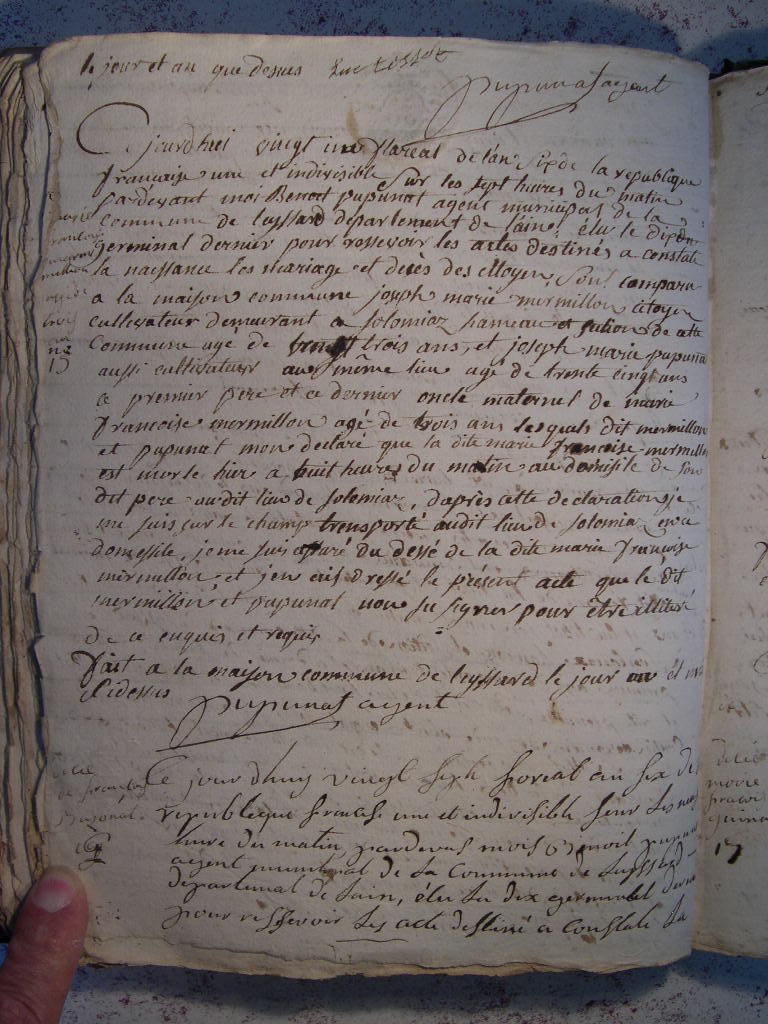 le jour et an que dessus Luc tossat
pupunat agent
Ce jourdhuei vingt un flareal de lan Six de la republique
francaise une et indivisible Sur les sept heures du matin
pardevant moi Benoit pupunat agent municipal de la
commune de leyssard département de l'ain, élu le dix du
germinal dernier pour ressevoir les actes destinés a constate
la naissance les mariage et décès des citoyen, Sont compara
a la maison commune joseph marie mermillon citoyen
cultivateur demeurant a Solomiaz hameau et section de cette
Commune age de trois ans, et joseph marie pupuna
aussi cultivateur au même lieu agé de trente cinq ans
ce premier pere et ce dernier oncle maternel de marie
francoise mermillon agé de trois ans lesquels dit mermillon
et pupunat mon declaré que la dite marie francoise mermillo
est morte hier a huit heures du matin au domisile de Son
dit pere audit lieu de Solomiaz, daprès cette declaration je
me suis sur le champ transporté audit lieu de Solomia
domessile, je me suis assuré du dessé de la dite marie francoise
mermillon et jen ais dressé le présent acte que le dit
mermillon et pupunat non su signer pour être illiteré
de ce enquis et requis
fait a la maison commune de leyssard le jour et
Cidessus
pupunat agent
trois
ans
15
Ce jourdhuy vingt Sept floreal an Six de
republique francaise une et indivisible Seur les neuf
heure du matin pardevas mois Benoit pupuna
agent municipal de La Commune de Leyssard
departemal de Lain, élu Le dix germinal dernie
pour ressevoir Les acte destiné a Constate La
de francois
17